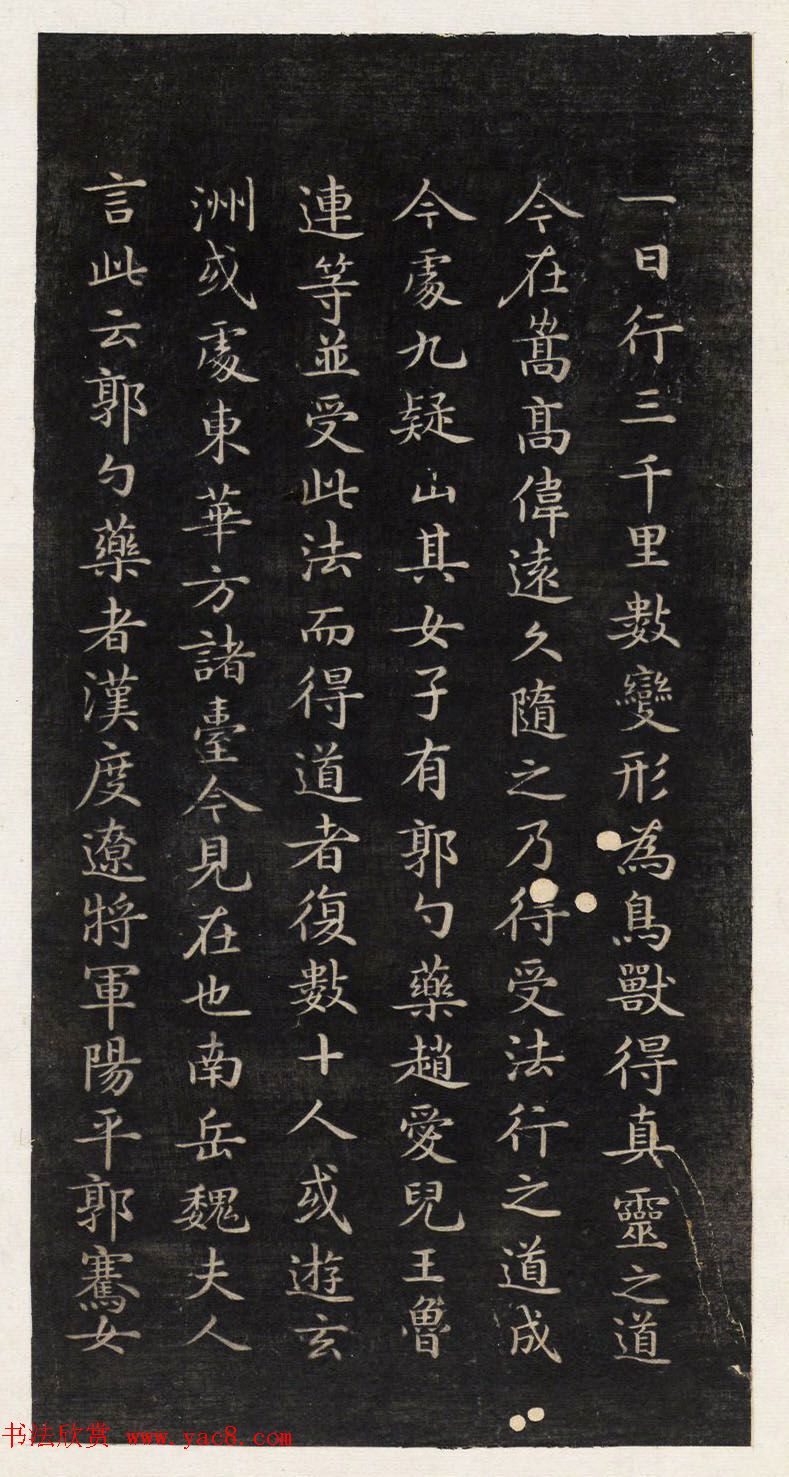 一日行三千里數變形為鳥獸得真靈之道
今在嵩高偉遠久隨之乃得受法行之道成
今處九疑山其女子有郭勺藥趙愛兒王魯
連等並受此法而得道者復數十人或遊玄
洲或處東華方諸臺今見在也南岳魏夫人
言此云郭勺藥者漢度遼將軍陽平郭騫女
书法欣赏 www.yac8.com